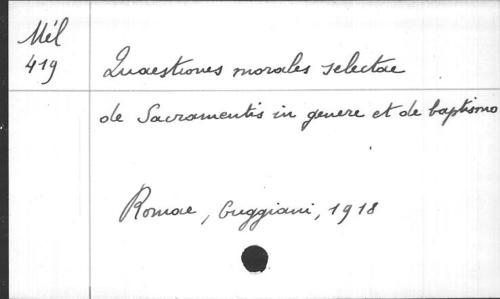 Mél
419
Quaestiones morales selectae
de Sacramentis in genere et de baptismo
Romae, Cuggiani, 1918